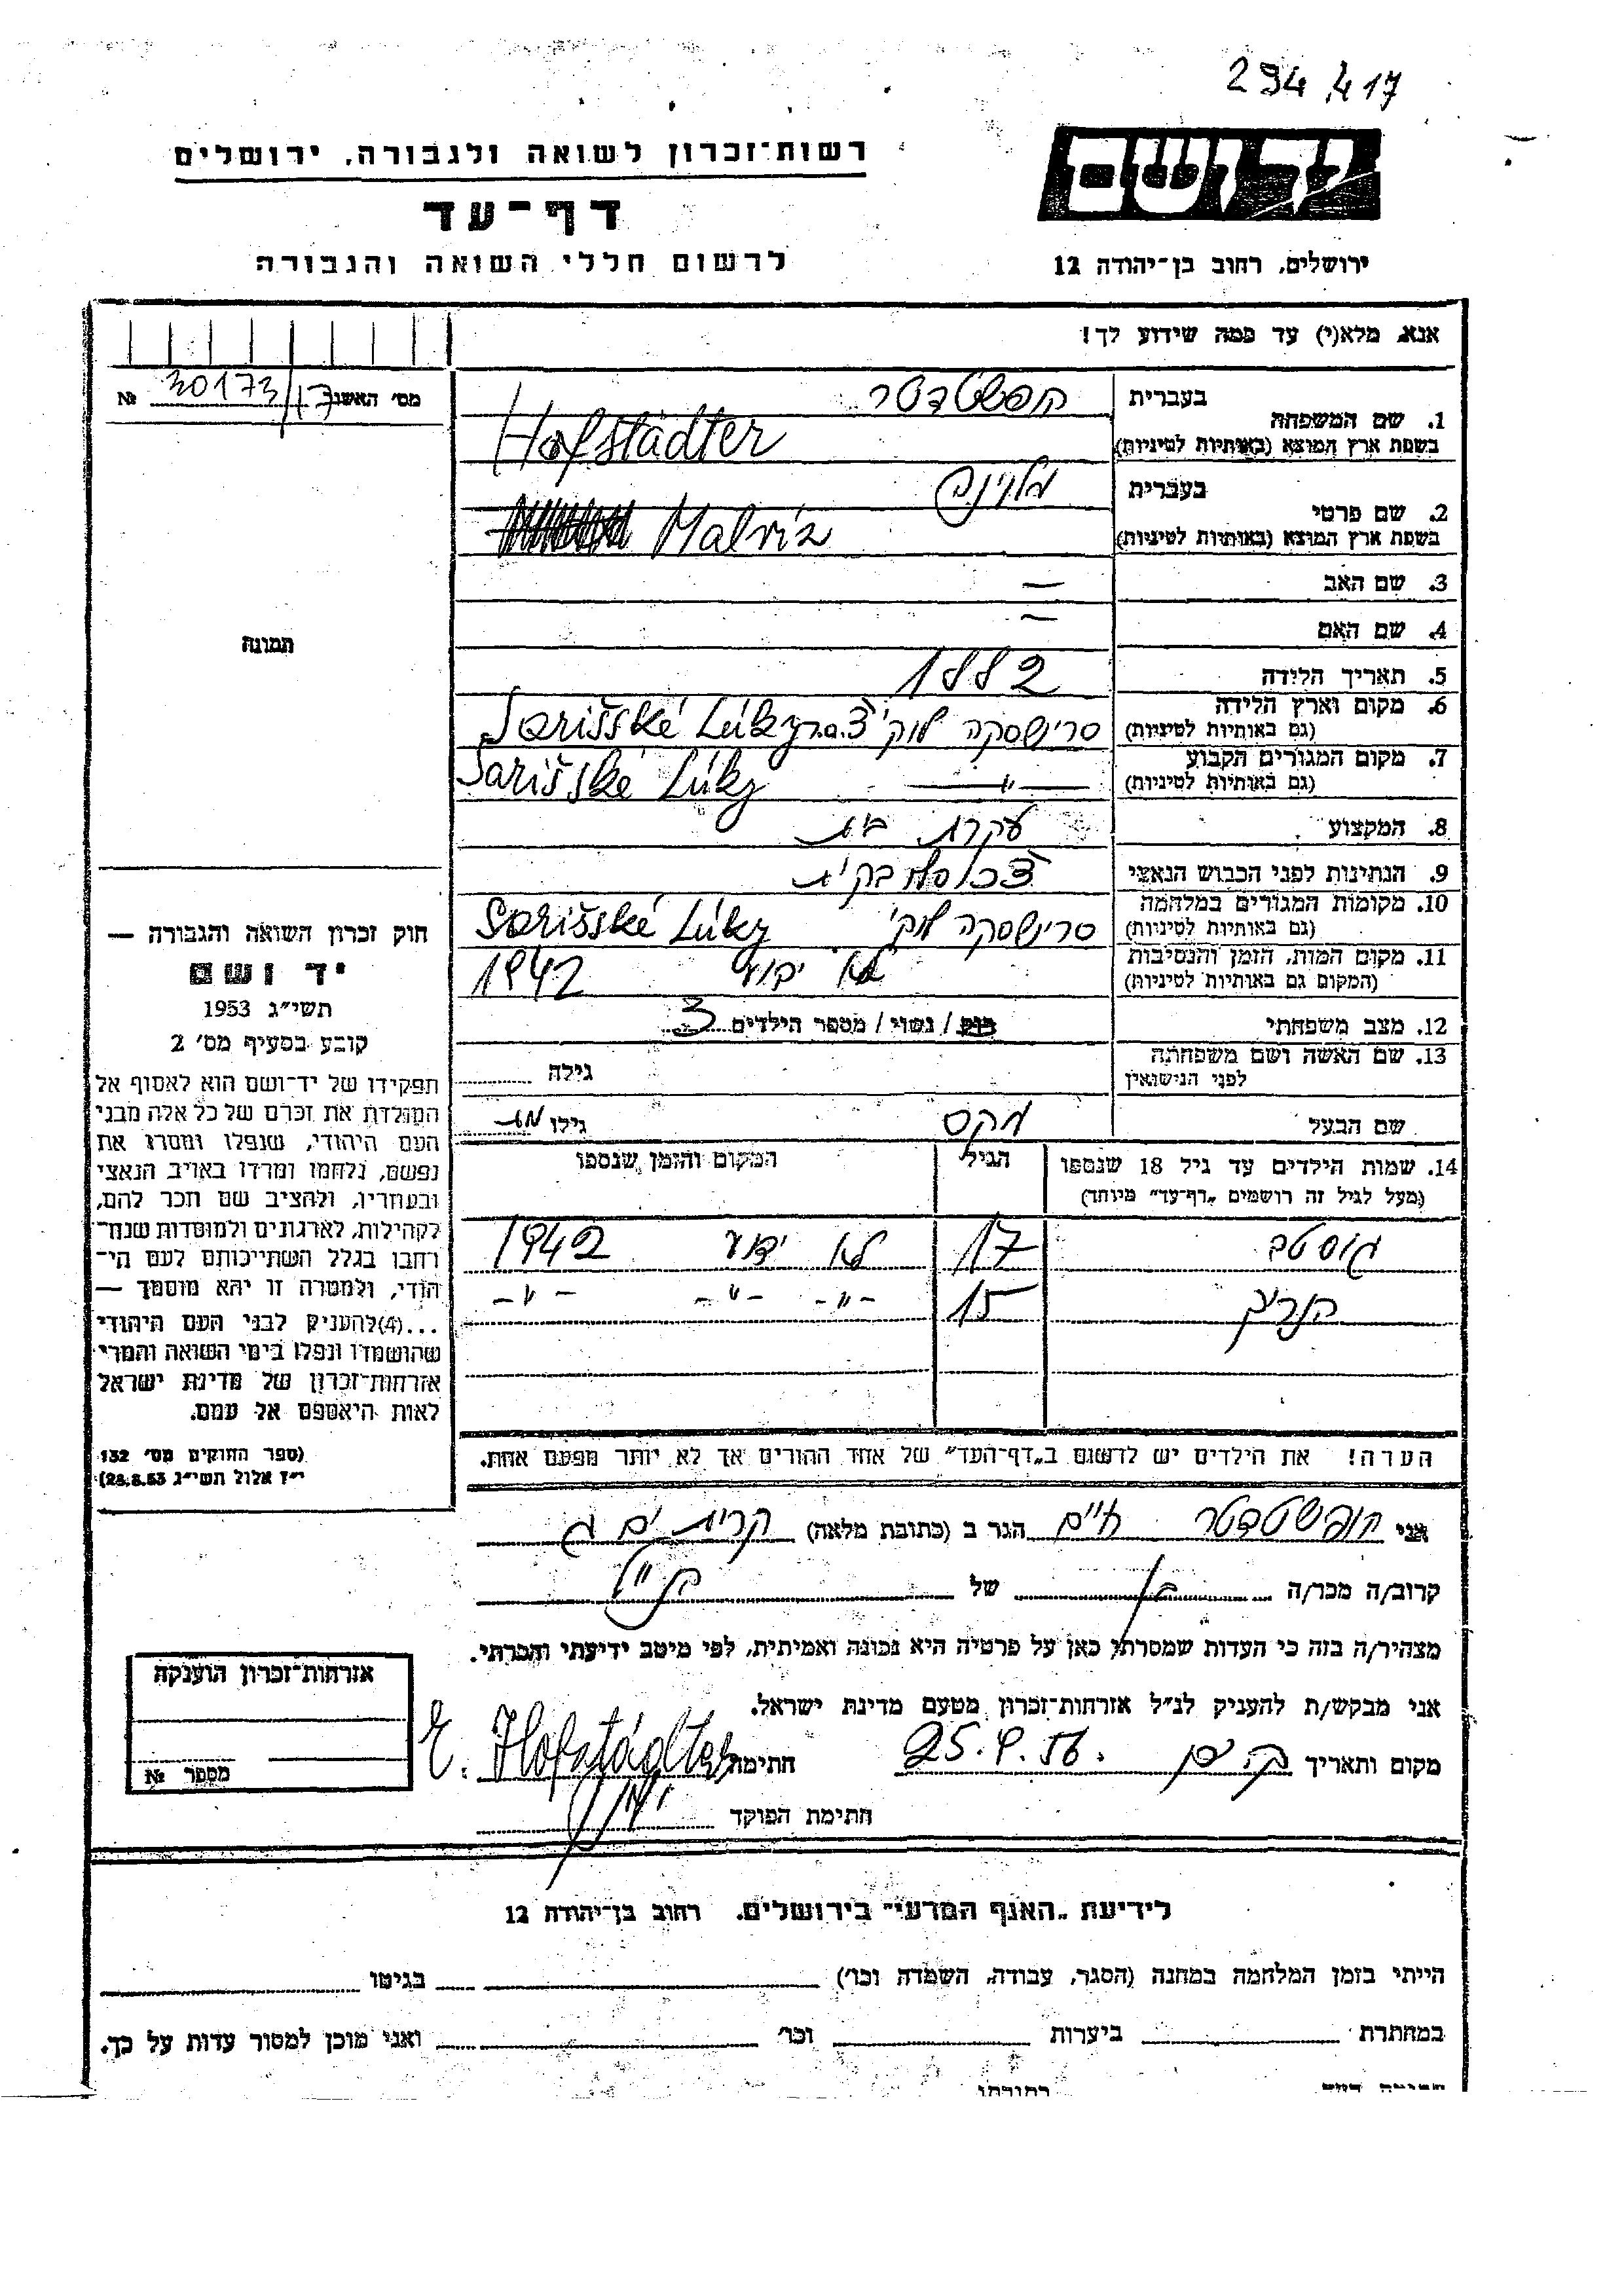 294,417
רשות־זכרון לשואה ולגבורה, ירושלים
דף־עד
לרשום חללי השואה והגבורה
יד ושם
ירושלים, רחוב בן־יהודה 12
אנא, מלא(י) עד כמה שידוע לך!
מס׳ האשנב 30173/17 №
תמונה
1. שם המשפחה בעברית הפשטדטר
בשפת ארץ המוצא (באותיות לטיניות) Hofstädter
2. שם פרטי בעברית מלוינה
בשפת ארץ המוצא (באותיות לטיניות) Malvin
3. שם האב —
4. שם האם —
5. תאריך הלידה 1882
6. מקום וארץ הלידה (גם באותיות לטיניות) סרישסקה לוקי צ.ס.ר Sarišské Lúky
7. מקום המגורים הקבוע (גם באותיות לטיניות) —״— Sarišské Lúky
8. המקצוע עקרת בית
9. הנתינות לפני הכבוש הנאצי צכוסלובקית
10. מקומות המגורים במלחמה (גם באותיות לטיניות) סרישסקה לוקי Sarišské Lúky
11. מקום המות, הזמן והנסיבות (המקום גם באותיות לטיניות) לא ידוע 1942
12. מצב משפחתי רוק / נשוי / מספר הילדים 3
13. שם האשה ושם משפחתה לפני הנישואין גילה
שם הבעל מקס גילו מת
14. שמות הילדים עד גיל 18 שנספו הגיל המקום והזמן שנספו
(מעל לגיל זה רושמים „דף־עד״ מיוחד)
גוסטב 17 לא ידוע 1942
הנריך 15 -״- -״- -״-
הערה! את הילדים יש לרשום ב„דף־העד״ של אחד ההורים אך לא יותר מפעם אחת.
חוק זכרון השואה והגבורה —
יד ושם
תשי״ג 1953
קובע בסעיף מס׳ 2
תפקידו של יד־ושם הוא לאסוף אל
המולדת את זכרם של כל אלה מבני
העם היהודי, שנפלו ומסרו את
נפשם, נלחמו ומרדו באויב הנאצי
ובעוזריו, ולהציב שם וזכר להם,
לקהילות, לארגונים ולמוסדות שנח־
רבו בגלל השתייכותם לעם הי־
הודי, ולמטרה זו יהא מוסמך —
...(4)להעניק לבני העם היהודי
שהושמדו ונפלו בימי השואה והמרי
אזרחות־זכרון של מדינת ישראל
לאות היאספם אל עמם.
(ספר החוקים מס׳ 132
י״ז אלול תשי״ג 28.8.53)
אני הופשטדטר חיים הגר ב (כתובת מלאה) קרית ים ג
קרוב/ה מכר/ה בן של הנ״ל
מצהיר/ה בזה כי העדות שמסרתי כאן על פרטיה היא נכונה ואמיתית, לפי מיטב ידיעתי והכרתי.
אני מבקש/ת להעניק לנ״ל אזרחות־זכרון מטעם מדינת ישראל.
מקום ותאריך ק. ים 25.4.56. חתימת E. Hofstädter
חתימת הפוקד
אזרחות־זכרון הוענקה
מספר №
לידיעת „האגף המדעי״ בירושלים, רחוב בן־יהודה 12
הייתי בזמן המלחמה במחנה (הסגר, עבודה, השמדה וכו׳) בגיטו
במחתרת ביערות וכו׳ ואני מוכן למסור עדות על כך.